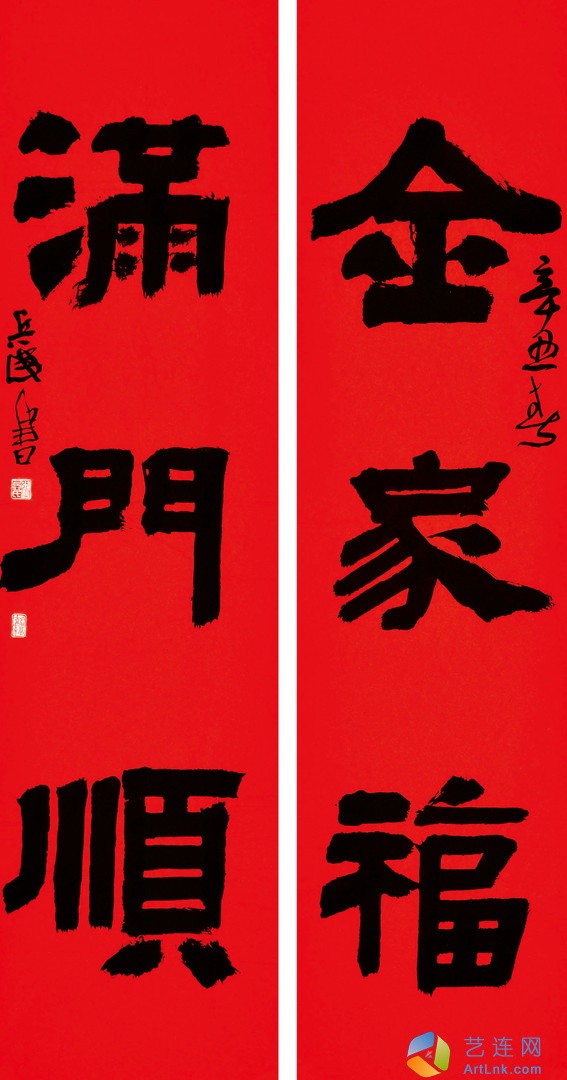 金家福
辛丑春
滿門順
艺连网
ArtLnk.com